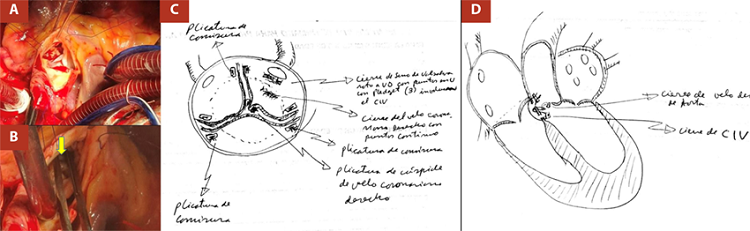 A
B
C
D
plicatura de
comisura
cierre de seno de valsalva
roto a VD con puntos en U
con pledget (3) involucrando
el CIV
Cierre del velo coro
derecho con
puntos continuo
plicatura de comisura
plicatura de cúspide
de vello coronariano
derecho
plicatura de
comisura
cierre de velo de
de aorta
cierre de CIV